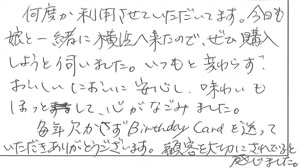 何度か利用させていただいてます。今日も
娘と一緒に横浜へ来たので、ぜひ購入
しようと伺いました。いつもと変わらず、
おいしいにおいに安心し、味わいも
ほっとして、心がなごみました。
毎年欠かさずBirthday Cardを送って
いただきありがとうございます。顧客を大切にされてると
感じました。